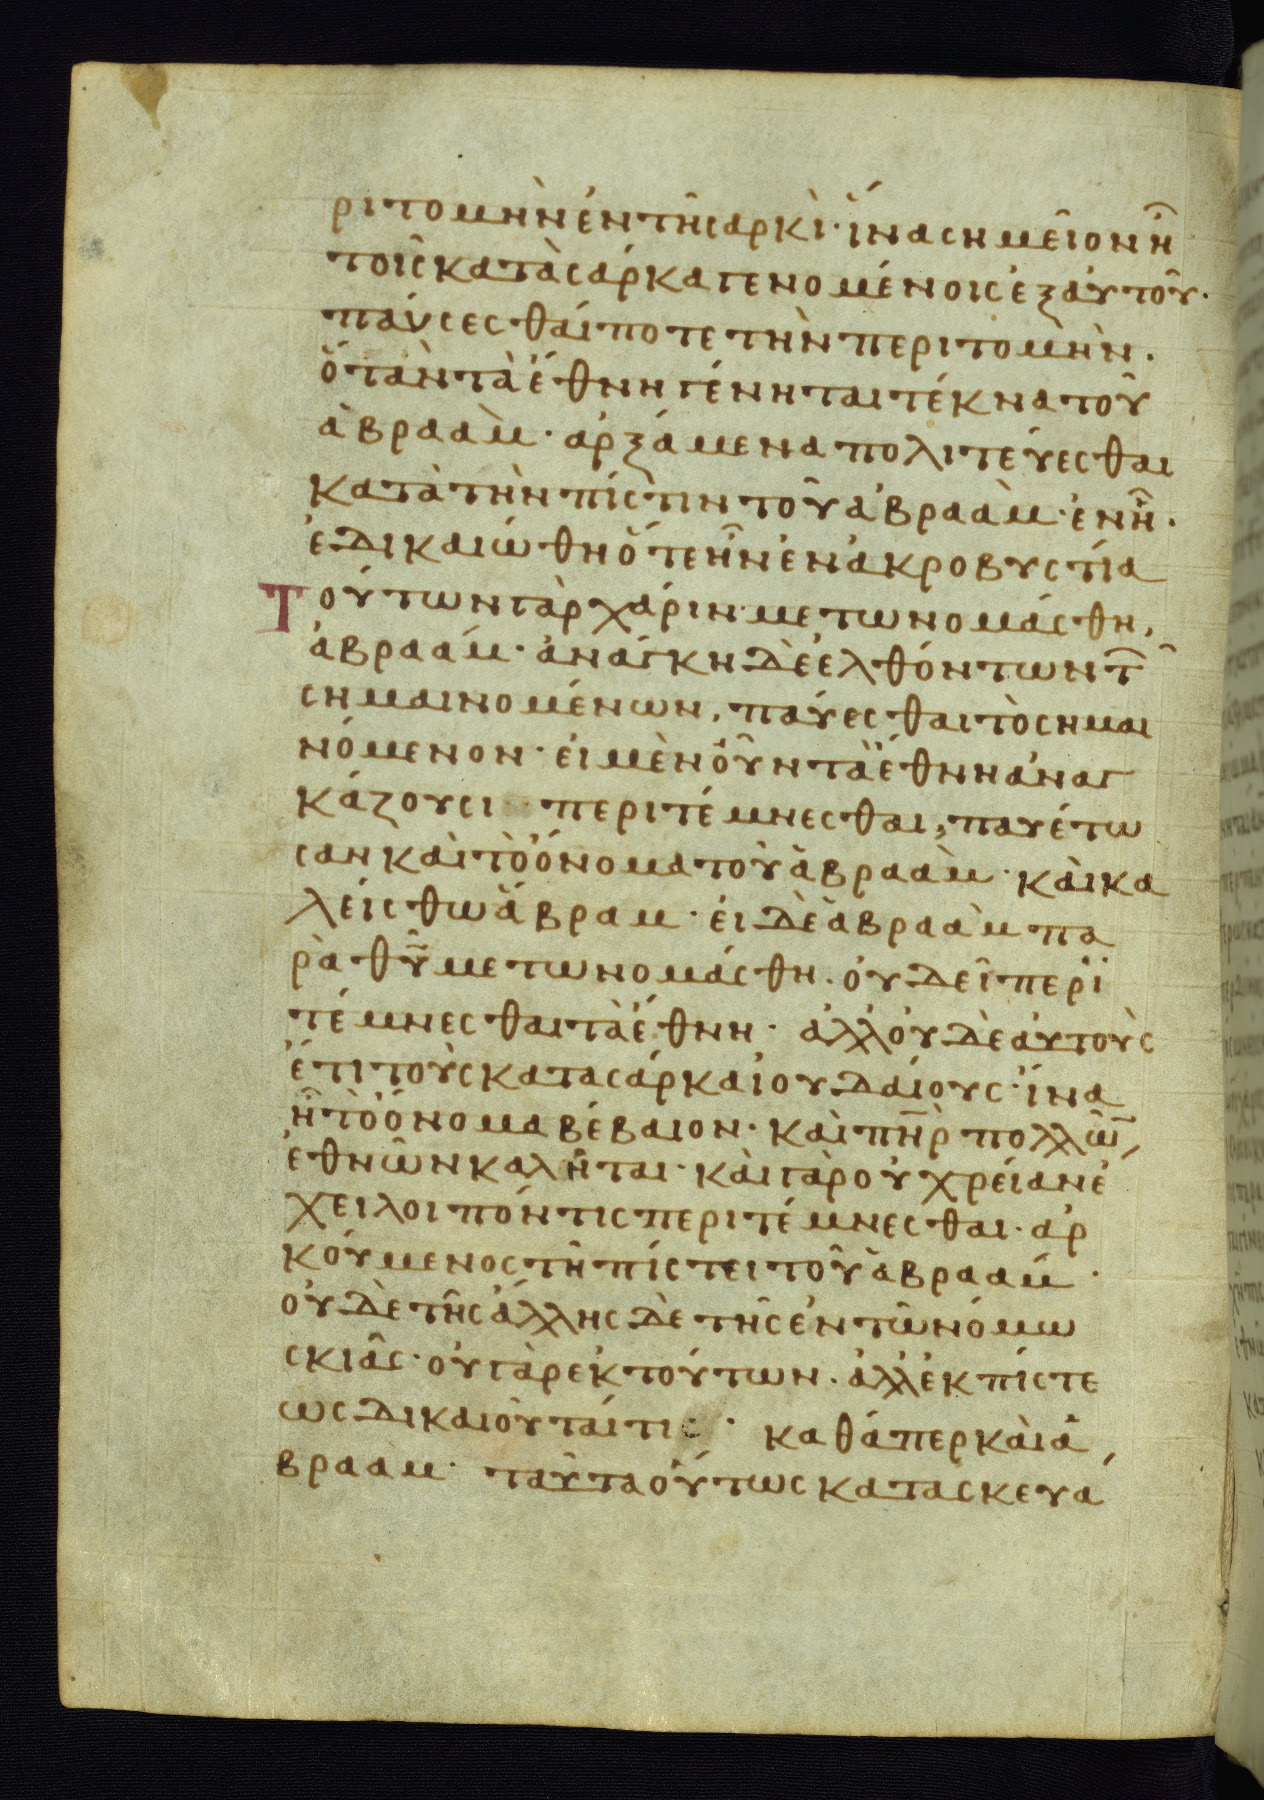 ριτομὴν ἐν τῆ σαρκὶ· ἵνα σημεῖον ῆ
τοῖς κατὰ σάρκα γενομένοις ἐξ ἀυτοῦ·
παύσεσθαί ποτε τὴν περιτομὴν·
ὅτὰν τὰ ἔθνη γένηται τέκνα τοῦ
ἀβραὰμ· ἀρξάμενα πολιτέυεσθαι
κατὰ τὴν πίστιν τοῦ ἀβραὰμ· ἐν ἧ·
ἐδικαιώθη ὅτε ἦν ἐν ἀκροβυστία
Τούτων γὰρ χάριν· μετωνομάσθη,
ἀβραάμ· ἀνάγκη δὲ ἐλθόντων τ͂
σημαινομένων, παύεσθαι τὸ σημαι
νόμενον· ἐι μὲν ὀῦν τὰ ἔθνη ἀναγ
κάζουσι περιτέμνεσθαι, παυέτω
σαν κὰι τὸ ὄνομα τοῦ ἀβραὰμ· κὰι κα
λείσθω ἄβραμ· ἐι δὲ ἀβραὰμ πα
ρὰ θῦ μετωνομάσθη. ὀυ δεῖ περϊ
τέμνεσθαι τὰ ἔθνη· ἀλλ ὀυδὲ ἀυτοὺς
ἔτι τοὺς κατα σάρκα ἰουδάιους· ἵνα
ῆ τὸ ὄνομα βέβαιον· κὰι πη̄ρ πολλῶ̄,
ἐθνῶν καλῆται· κὰι γὰρ ὀυ χρέιαν ἐ
χει λοιπόν τις περιτέμνεσθαι· ἀρ
κόυμενος τῆ πίστει τοῦ ἀβραάμ·
ὀυδὲ τῆς ἄλλης δὲ τῆς ἐν τῶ νόμω
σκιᾶς· ὀυ γὰρ ἐκ τόυτων. ἀλλ ἐκ πίστε
ως δικαιοῦταί τις· καθάπερ κὰι ἀ
βραὰμ· τᾶυτα ὀύτως κατασκευά